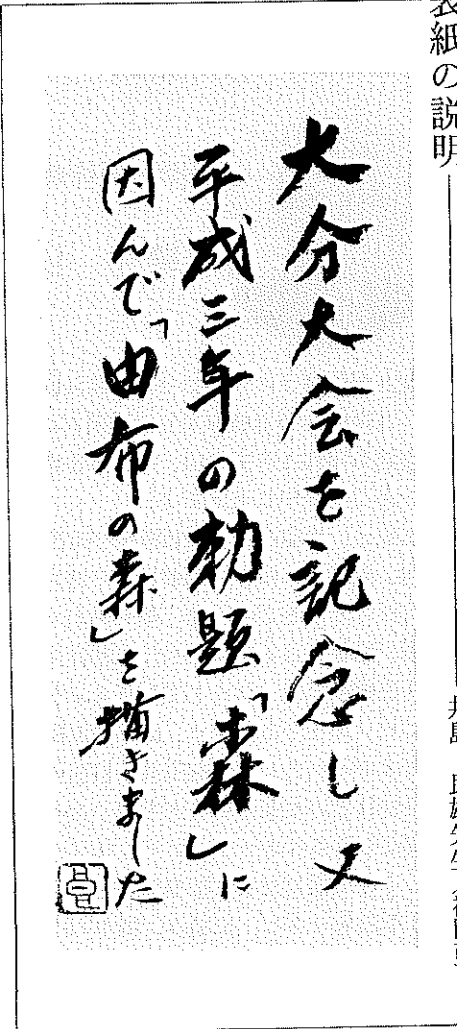 表紙の説明
大分大会を記念し又
平成三年の勅題「森」に
因んで「由布の森」を描きました